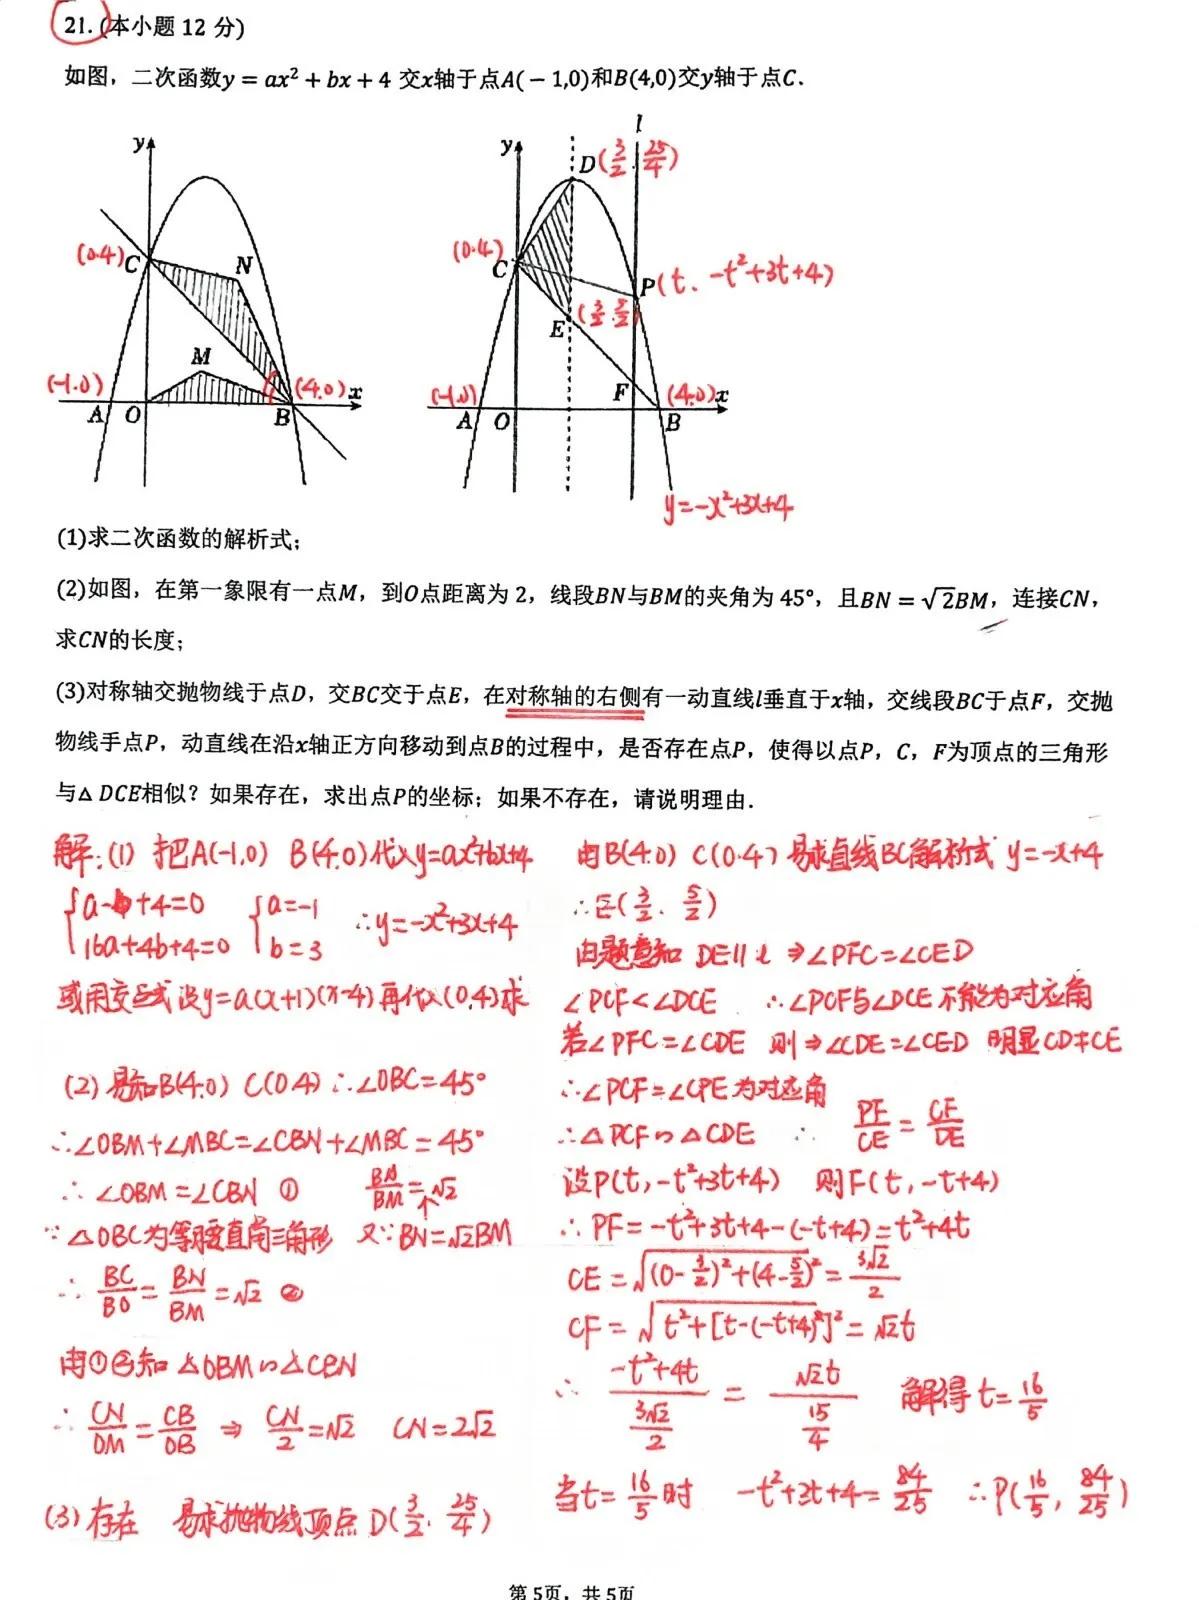 21. (本小题 12 分)
如图，二次函数y = ax² + bx + 4 交x轴于点A(－1,0)和B(4,0)交y轴于点C.
y
(0.4) C
N
M
(-1.0)
A O B
(4.0) x
l
y
D(3/2. 25/4)
(0.4)
C
P(t、-t²+3t+4)
E
(3/2. 5/2)
(-1.0)
F
(4.0) x
A O B
y=-x²+3x+4
(1)求二次函数的解析式;
(2)如图，在第一象限有一点M，到O点距离为 2，线段BN与BM的夹角为 45°，且BN = √2BM，连接CN，
求CN的长度;
(3)对称轴交抛物线于点D，交BC交于点E，在对称轴的右侧有一动直线l垂直于x轴，交线段BC于点F，交抛
物线手点P，动直线在沿x轴正方向移动到点B的过程中，是否存在点P，使得以点P，C，F为顶点的三角形
与△ DCE相似？如果存在，求出点P的坐标；如果不存在，请说明理由.
解：(1) 把A(-1.0) B(4.0)代入y=ax²+bx+4
{a-b+4=0 {a=-1
16a+4b+4=0 b=3 ∴y=-x²+3x+4
或用交点式 设y=a(x+1)(x-4)再代入(0.4)求
(2) 易知B(4.0) C(0.4) ∴∠OBC=45°
∴∠OBM+∠MBC=∠CBN+∠MBC=45°
∴ ∠OBM=∠CBN ① BN/BM=√2
∵△OBC为等腰直角三角形 又∵BN=√2BM
∴ BC/BO=BN/BM=√2 ②
由①②知 △OBM∽△CBN
∴ CN/OM=CB/OB ⇒ CN/2=√2 CN=2√2
(3) 存在 易求抛物线顶点 D(3/2. 25/4)
由B(4.0) C(0.4) 易求直线BC解析式 y=-x+4
∴E(3/2、5/2)
由题意知 DE∥l ⇒∠PFC=∠CED
∠PCF<∠DCE ∴∠PCF与∠DCE不能为对应角
若∠PFC=∠CDE 则⇒∠CDE=∠CED 明显CD≠CE
∴∠PCF=∠CPE为对应角
∴△PCF∽△CDE ∴ PF/CE=CF/DE
设P(t,-t²+3t+4) 则F(t,-t+4)
∴ PF=-t²+3t+4-(-t+4)=t²+4t
CE=√(0-3/2)²+(4-5/2)²=3√2/2
CF=√t²+[t-(-t+4)²]²=√2t
∴ (-t²+4t)/(3√2/2)=√2t/(15/4) 解得t=16/5
当t=16/5时 -t²+3t+4=84/25 ∴P(16/5, 84/25)
第 5页，共 5页